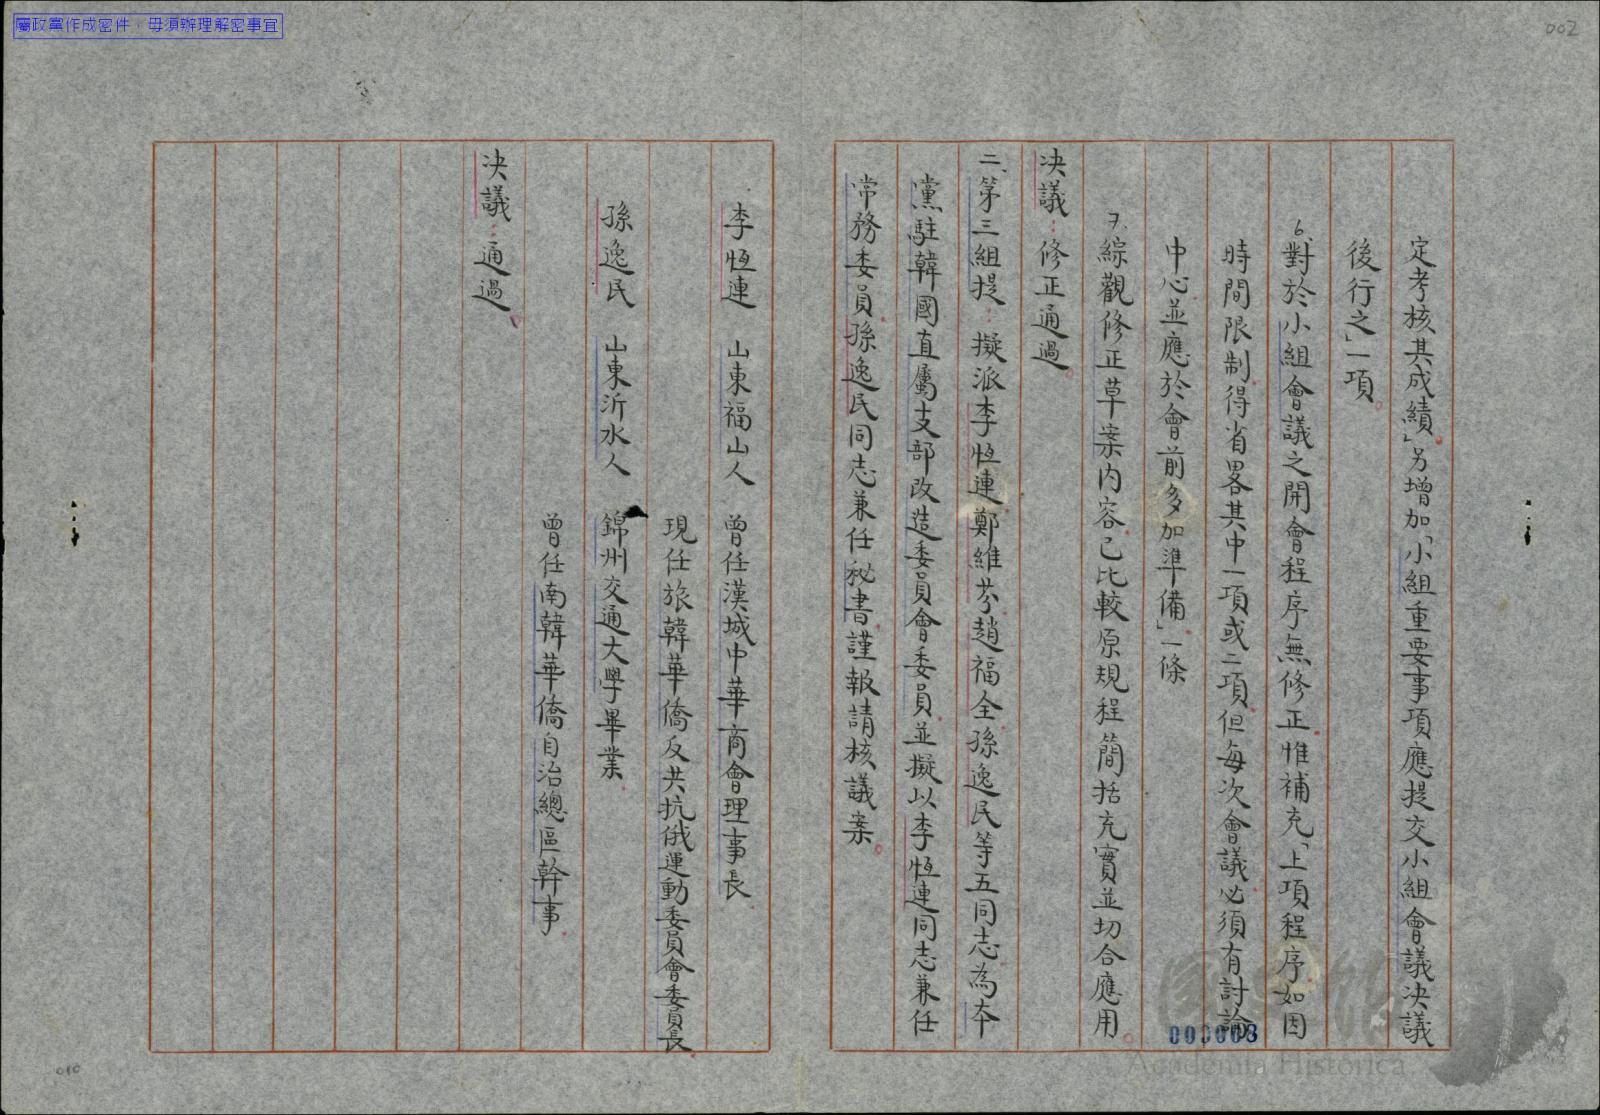 屬政黨作成密件，毋須辦理解密事宜
002
定考核其成績」另增加「小組重要事項應提交小組會議決議
後行之」一項。
6.對於小組會議之開會程序無修正惟補充「上項程序如因
時間限制得省畧其中一項或二項但每次會議必須有討論
中心並應於會前多加準備」一條
7.綜觀修正草案內容已比較原規程簡括充實並切合應用。
決議：修正通過。
二、第三組提：擬派李恆連鄭維芬趙福全孫逸民等五同志為本
黨駐韓國直屬支部改造委員會委員並擬以李恆連同志兼任
常務委員孫逸民同志兼任秘書謹報請核議案。
李恆連 山東福山人 曾任漢城中華商會理事長
現任旅韓華僑反共抗俄運動委員會委員長
孫逸民 山東沂水人 錦州交通大學畢業
曾任南韓華僑自治總區幹事
決議：通過。
000003
國史館
Academia Historica
010